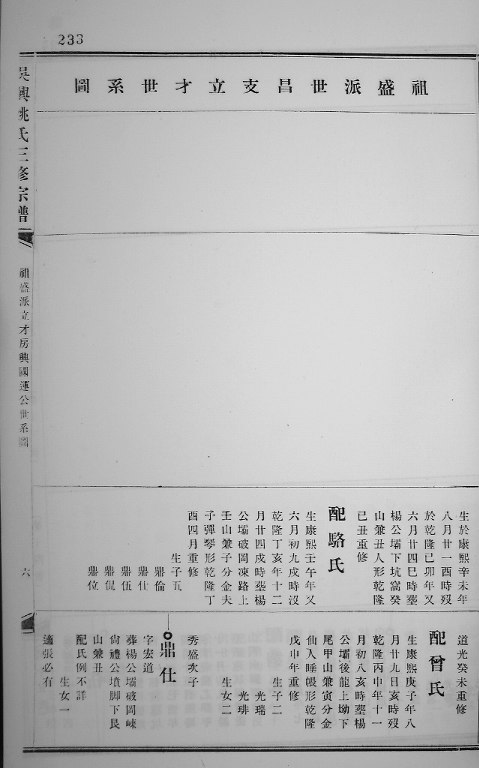 233
祖盛派世昌支立才世系圖
吳興姚氏三修宗譜
祖盛派立才房興國運公世系圖
六
生於康熙辛未年
八月廿一酉時歿
於乾隆己卯年又
六月廿四巳時塟
楊公壩下坑窩癸
山兼丑人形乾隆
己丑重修
配駱氏
生康熙壬午年又
六月初九戌時沒
乾隆丁亥年十二
月廿四戌時塟楊
公壩破岡凍路上
壬山兼子分金夫
子彈琴形乾隆丁
酉四月重修
生子五
鼎倫
鼎仕
鼎伍
鼎侃
鼎位
道光癸未重修
配曾氏
生康熙庚子年八
月廿九日亥時歿
乾隆丙申年十一
月初八亥時塟楊
公壩後龍上坳下
尾甲山兼寅分金
仙人睡帳形乾隆
戊申年重修
生子二
光瑞
光琲
生女二
秀盛次子
鼎仕
字宏道
葬楊公壩破岡崠
尙禮公墳脚下艮
山兼丑
配氏例不詳
生女一
適張必有